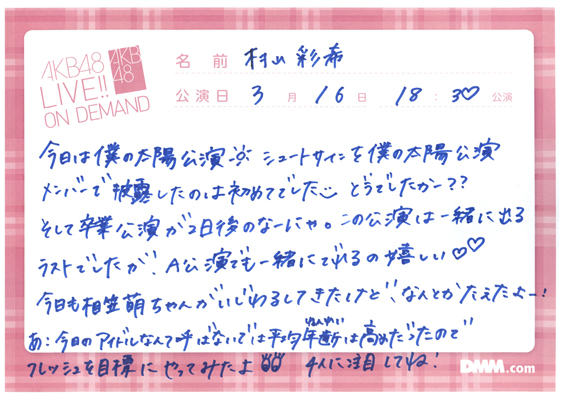 AKB48
LIVE!!
ON DEMAND
AKB
48
名前 村山 彩希
公演日 3月16日 18:30 公演
今日は僕の太陽公演 シュートサインを僕の太陽公演
メンバーで披露したのは初めてでした どうでしたかー??
そして卒業公演が2日後のなーにゃ。この公演は一緒に出る
ラストでしたが、A公演でも一緒にでれるのが嬉しい♡♡
今日も相笠萌ちゃんがいじわるしてきたけど、なんとかたえたよー!
あ:今日のアイドルなんて呼ばないでは平均年齢は高めだったので
ねんれい
フレッシュを目標にやってみたよ 4人に注目してね!
DMM.com